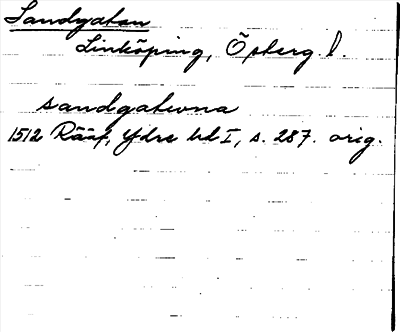 Sandgatan
Linköping, Östergl.
sandgatonna
1512 Rääf, Ydre bd I, s. 287. orig.